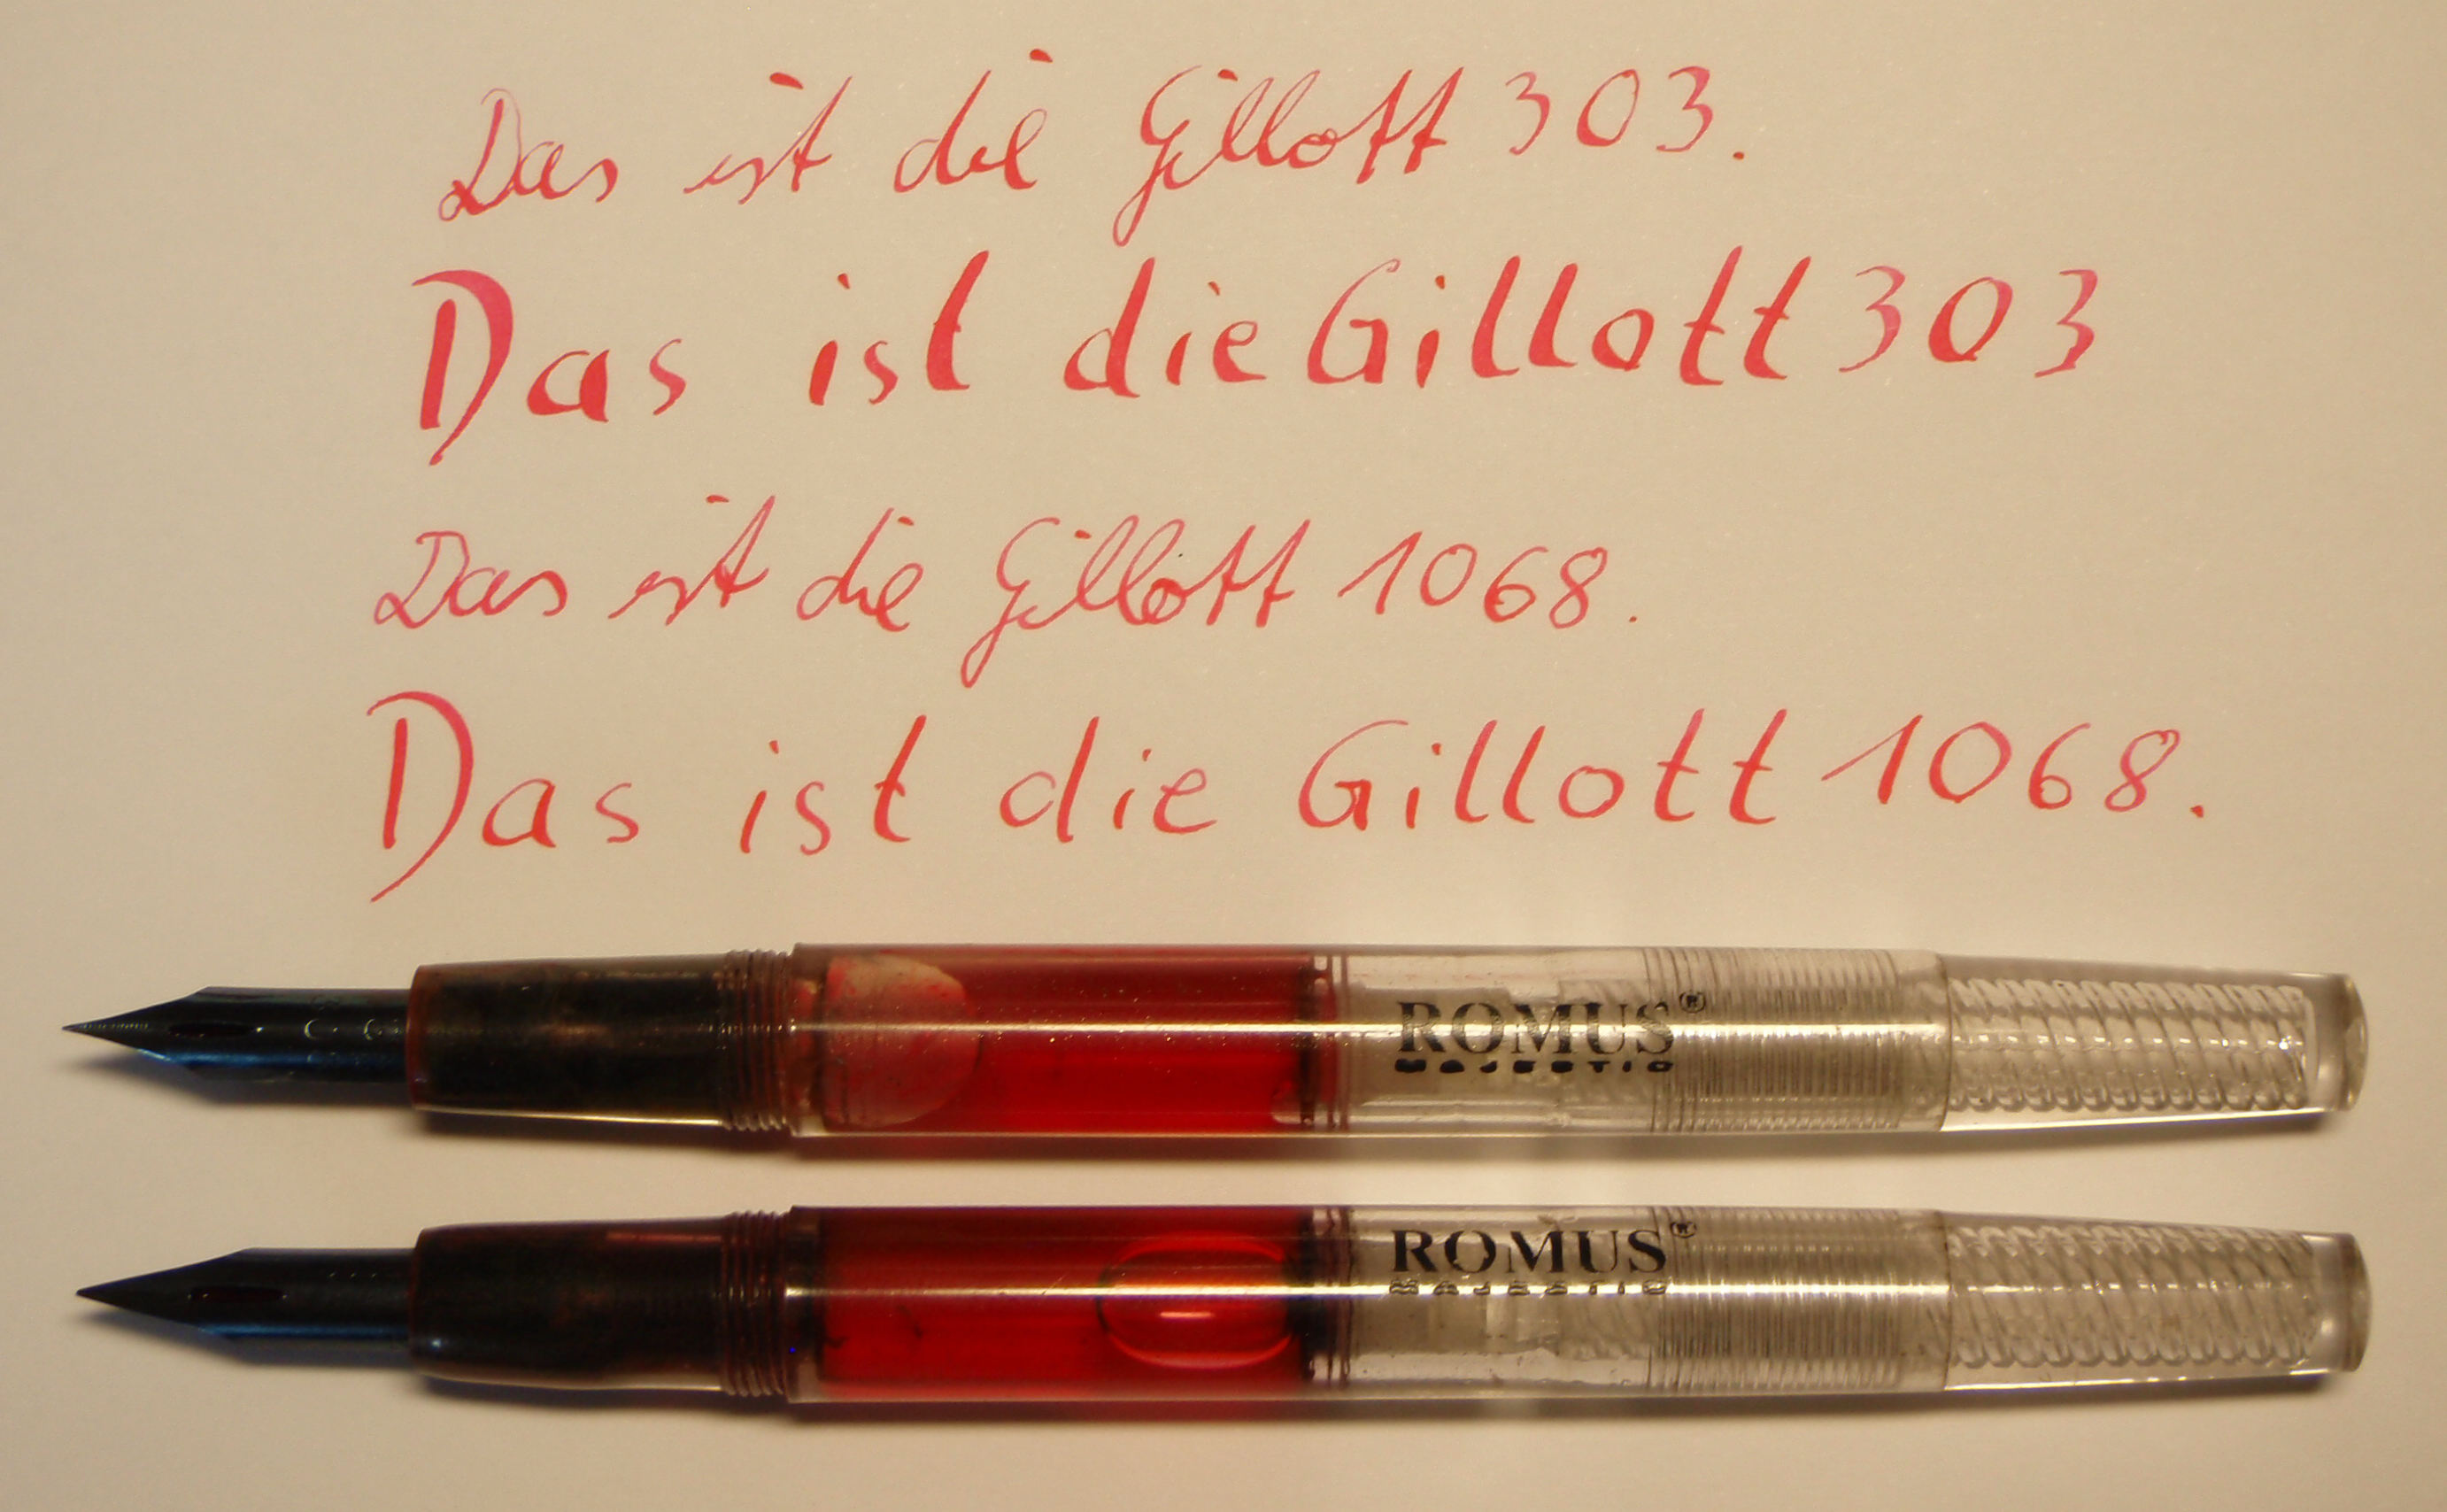 Das ist die Gillott 303.
Das ist die Gillott 303
Das ist die Gillott 1068.
Das ist die Gillott 1068.
ROMUS®
MAJESTIC
ROMUS®
MAJESTIC